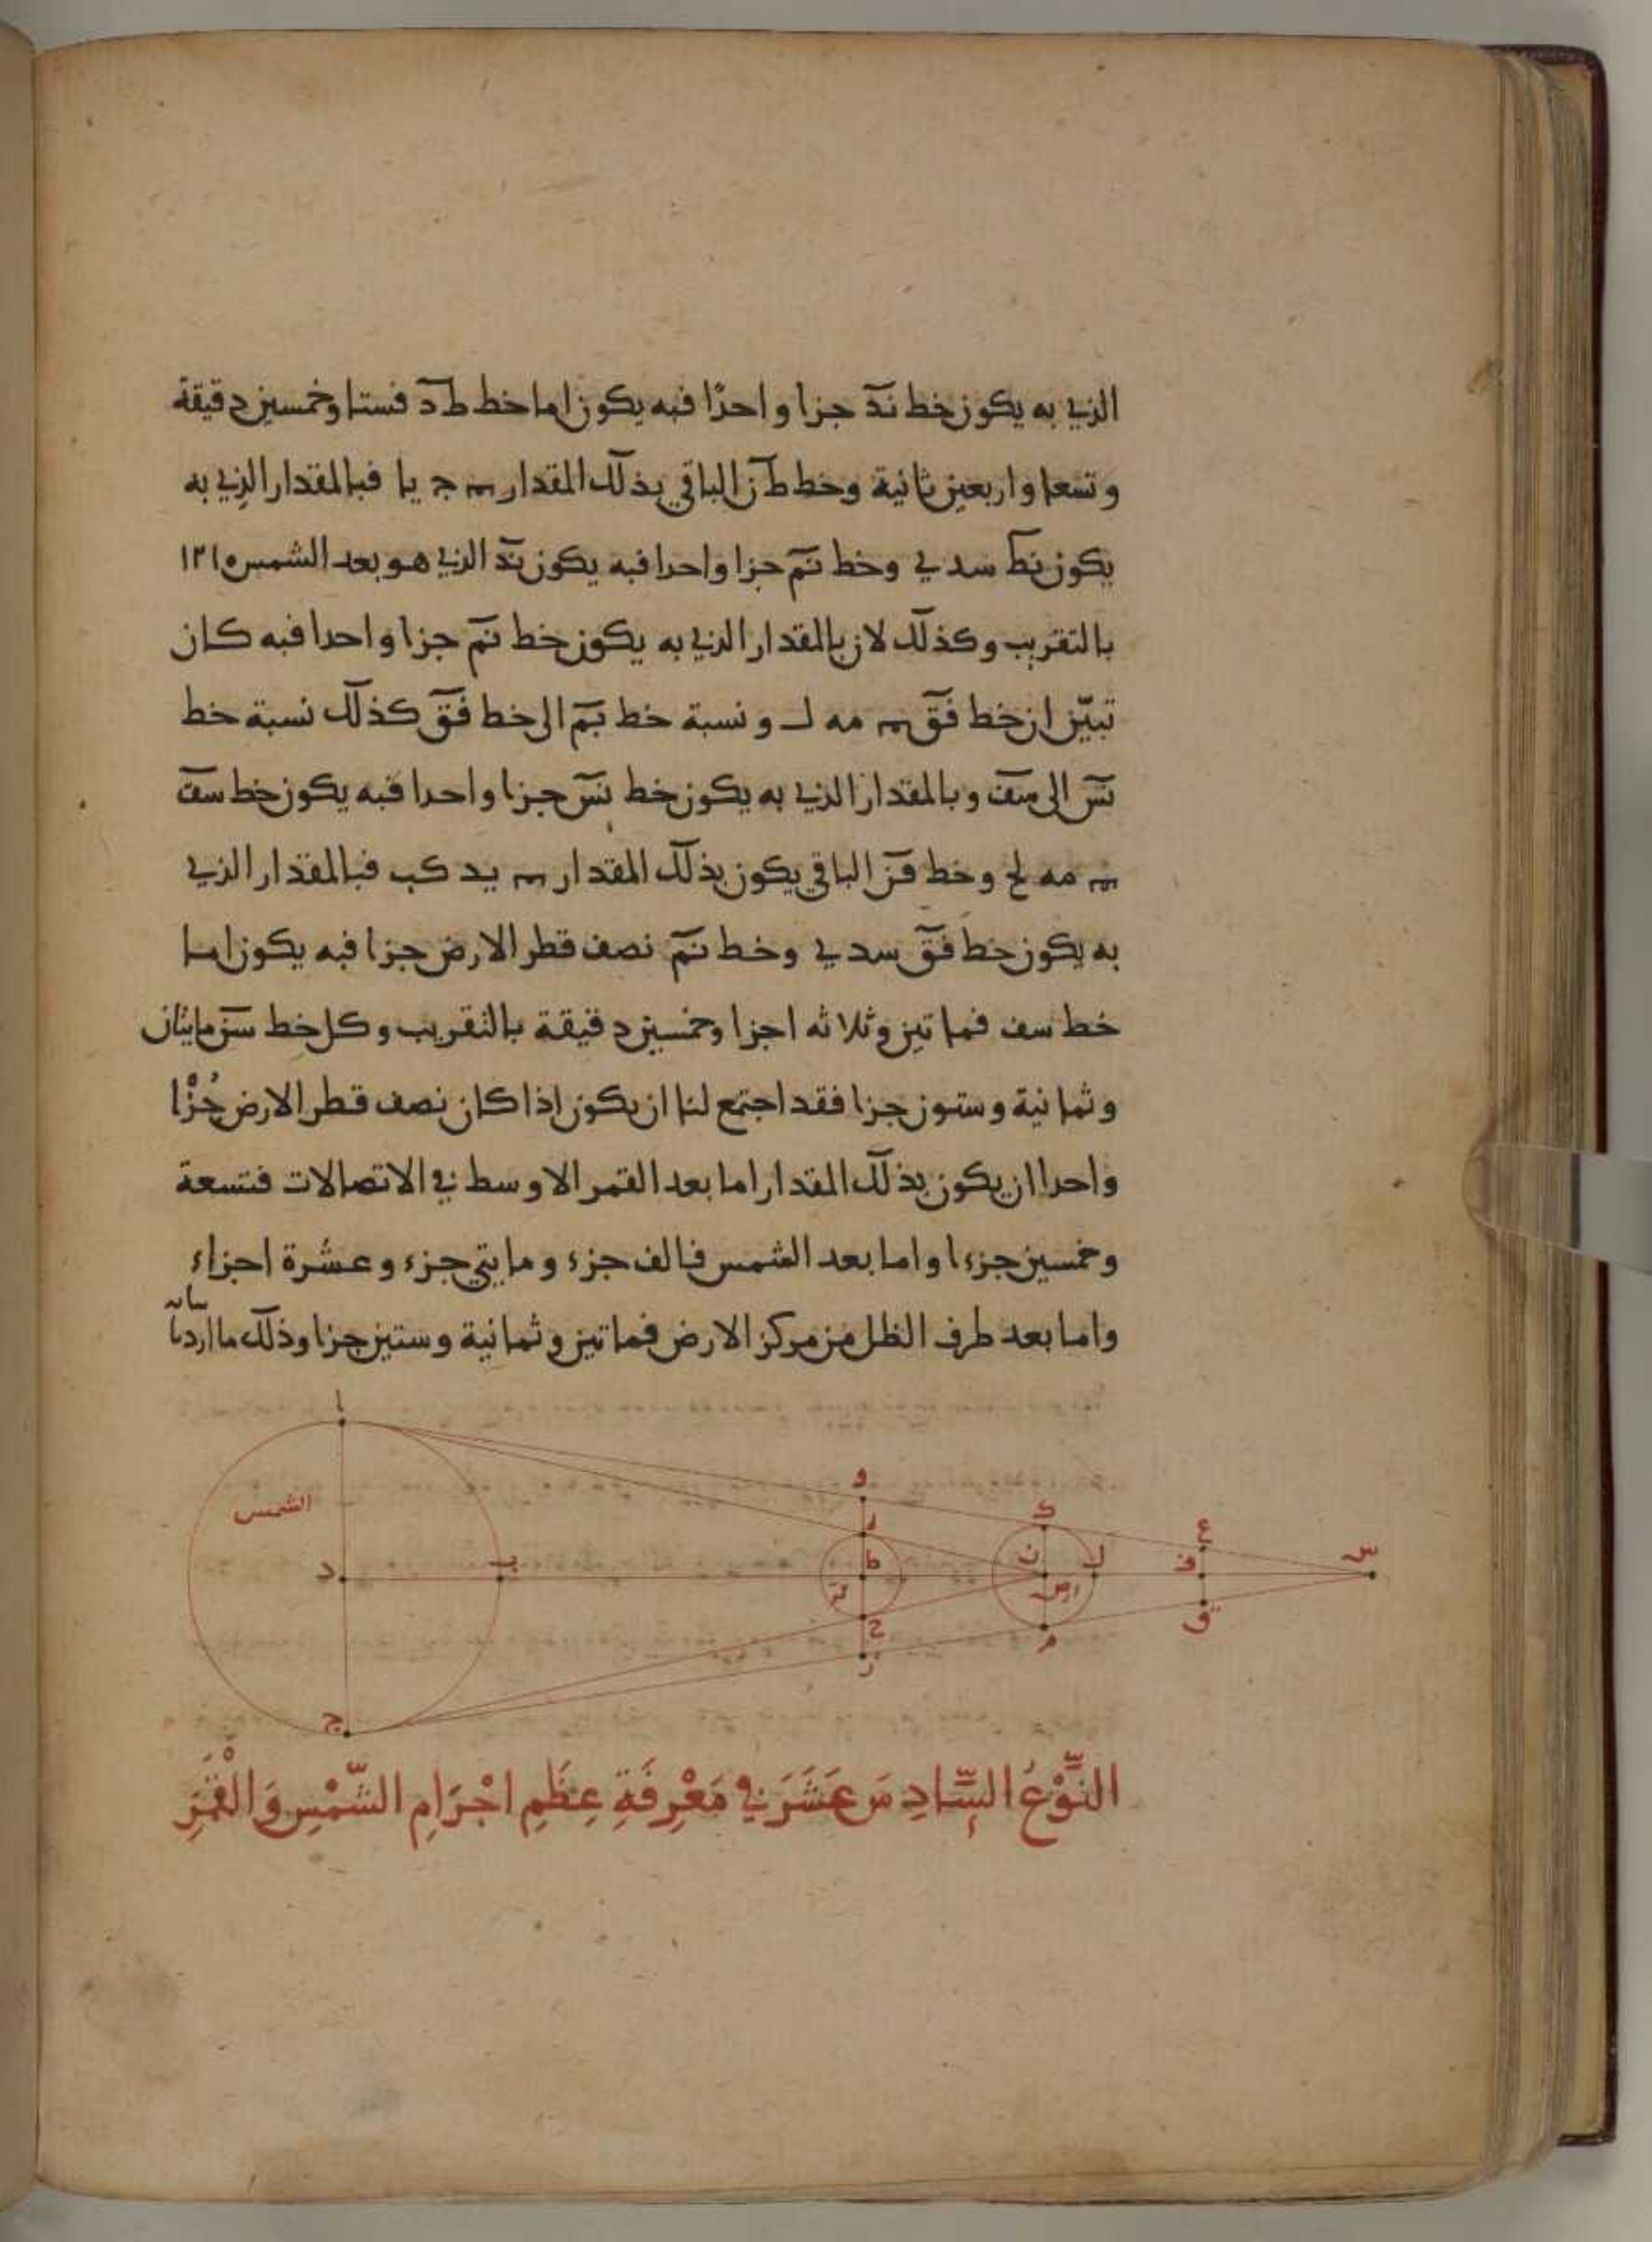 الذي به يكون خط ند جزا واحدًا فبه يكون اما خط ط د فستا وخمسين دقيقة
وتسعا واربعين ثانية وخط ط ن الباقي بذلك المقدار ج يا فبالمقدار الذي به
يكون نط سد ي وخط نم جزا واحدا فبه يكون ند الذي هو بعد الشمس ١٢١٥
بالتقريب وكذلك لان بالمقدار الذي به يكون خط نم جزا واحدا فبه كان
تبيّن ان خط فق مه ل ونسبة خط نم الى خط فق كذلك نسبة خط
نس الى سف وبالمقدار الذي به يكون خط نس جزا واحدا فبه يكون خط سف
مه لح وخط فن الباقي يكون بذلك المقدار يد كب فبالمقدار الذي
به يكون خط فن سد ي وخط نم نصف قطر الارض جزا فبه يكون اما
خط سف فماتين وثلاثه اجزا وخمسين دقيقة بالتقريب وكل خط سن مايتان
وثمانية وستون جزا فقد اجتمع لنا ان يكون اذا كان نصف قطر الارض جُزْا
واحدا ان يكون بذلك المقدار اما بعد القمر الاوسط في الاتصالات فتسعة
وخمسين جزءا واما بعد الشمس فالف جزء ومايتي جزء وعشرة اجزاء
واما بعد طرف الظل من مركز الارض فماتين وثمانية وستين جزا وذلك ما اردنا بيانه
ا
و
الشمس
ر
ك
ع
س
د
ب
ط
ن
ل
ف
ارض
ح
م
ق
ز
ج
النَّوْعُ السَّادِسَ عَشَرَ في مَعْرِفَةِ عِظَمِ اجْرَامِ الشَّمْسِ وَالْقَمَرِ